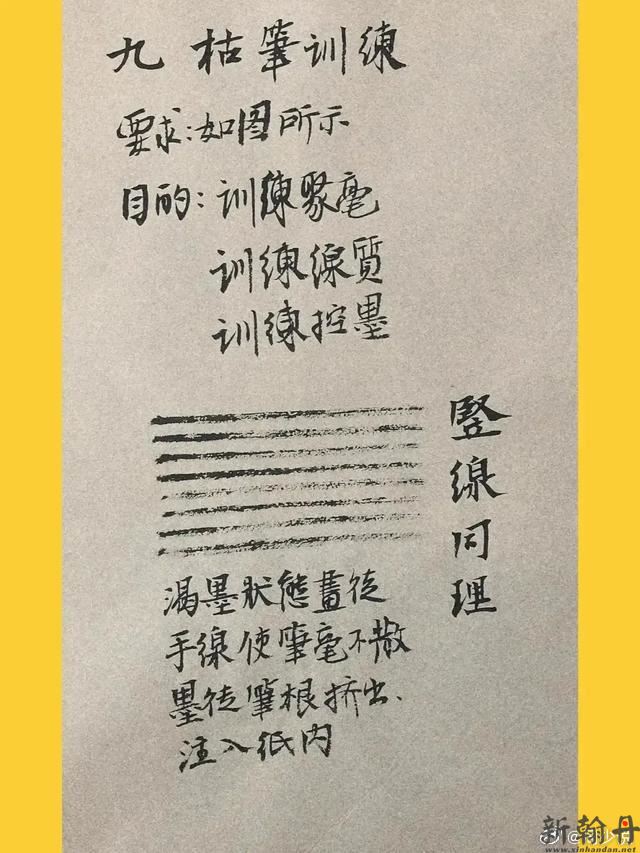 九 枯筆训練
要求:如图所示
目的:训練聚毫
训練線質
训練控墨
竪線同理
渴墨狀態畫徒
手線使筆毫不散
墨從筆根挤出、
注入紙内
新翰丹
www.xinhandan.net